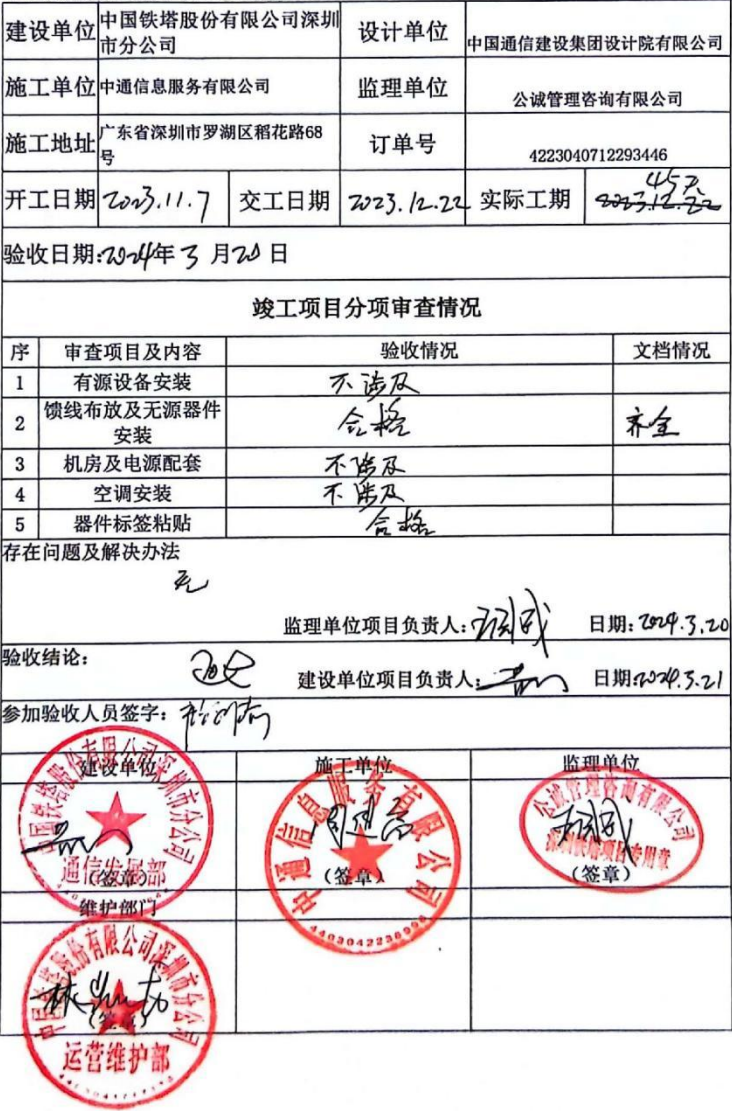 建设单位 中国铁塔股份有限公司深圳市分公司 设计单位 中国通信建设集团设计院有限公司
施工单位 中通信息服务有限公司 监理单位 公诚管理咨询有限公司
施工地址 广东省深圳市罗湖区稻花路68号 订单号 4223040712293446
开工日期 2023.11.7 交工日期 2023.12.22 实际工期 45天 2023.12.22
验收日期:2024年3月20日
竣工项目分项审查情况
序 审查项目及内容 验收情况 文档情况
1 有源设备安装 不涉及
2 馈线布放及无源器件安装 合格 齐全
3 机房及电源配套 不涉及
4 空调安装 不涉及
5 器件标签粘贴 合格
存在问题及解决办法
无
监理单位项目负责人: 日期:2024.3.20
验收结论:
建设单位项目负责人: 日期:2024.3.21
参加验收人员签字:
建设单位 施工单位 监理单位
中国铁塔股份有限公司深圳市分公司
通信发展部
(签章)
中通信息服务有限公司
(签章)
4403042238994
公诚管理咨询有限公司
(签章)
维护部门
中国铁塔股份有限公司深圳市分公司
(签章)
运营维护部